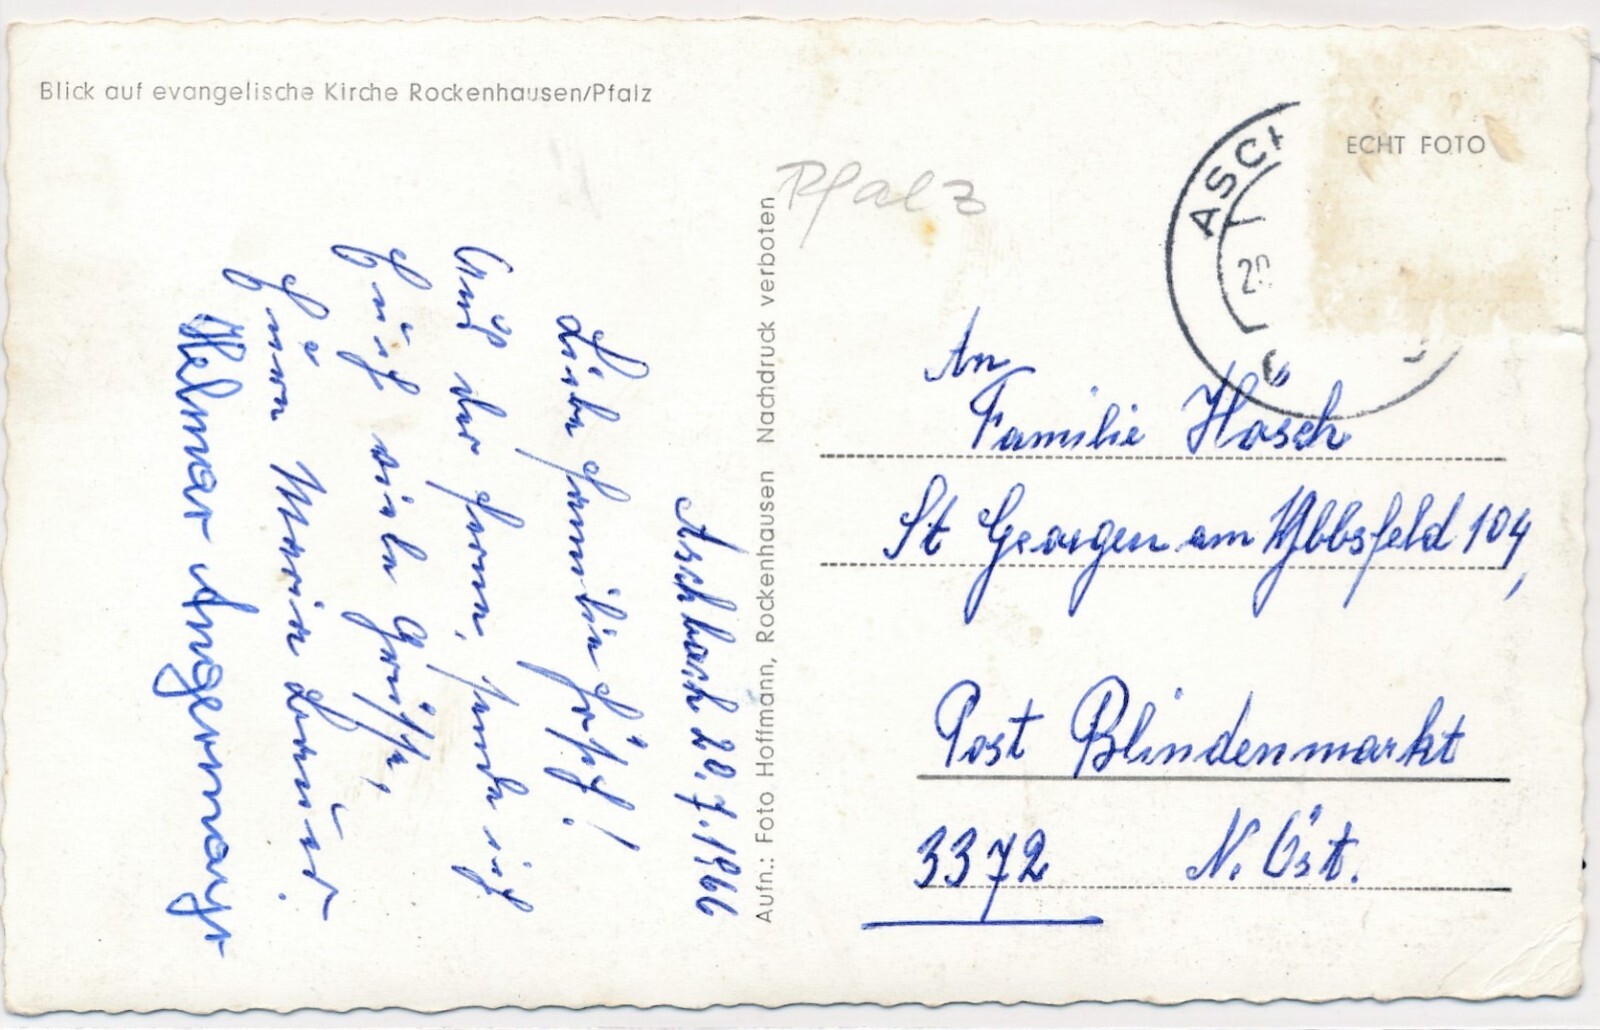 Blick auf evangelische Kirche Rockenhausen/Pfalz
ECHT FOTO
Pfalz
ASCH
20
Aufn.: Foto Hoffmann, Rockenhausen Nachdruck verboten
Aschbach 20.7.1966
Liebe Familie Hösch!
Aus der Ferne, sende ich
Euch viele Grüße,
Eure
Helmar Angermayr
An
Familie Hösch
St Georgen am Ybbsfeld 104,
Post Blindenmarkt
3372 N. Öst.